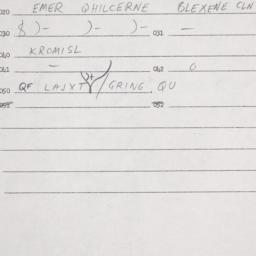 020 EMER QHILCERNE BLEXENE CLN
030 { )- )- )- 031 —
040 KROMISL
041 – 042 O
050 QF LAJXT GRING, QU